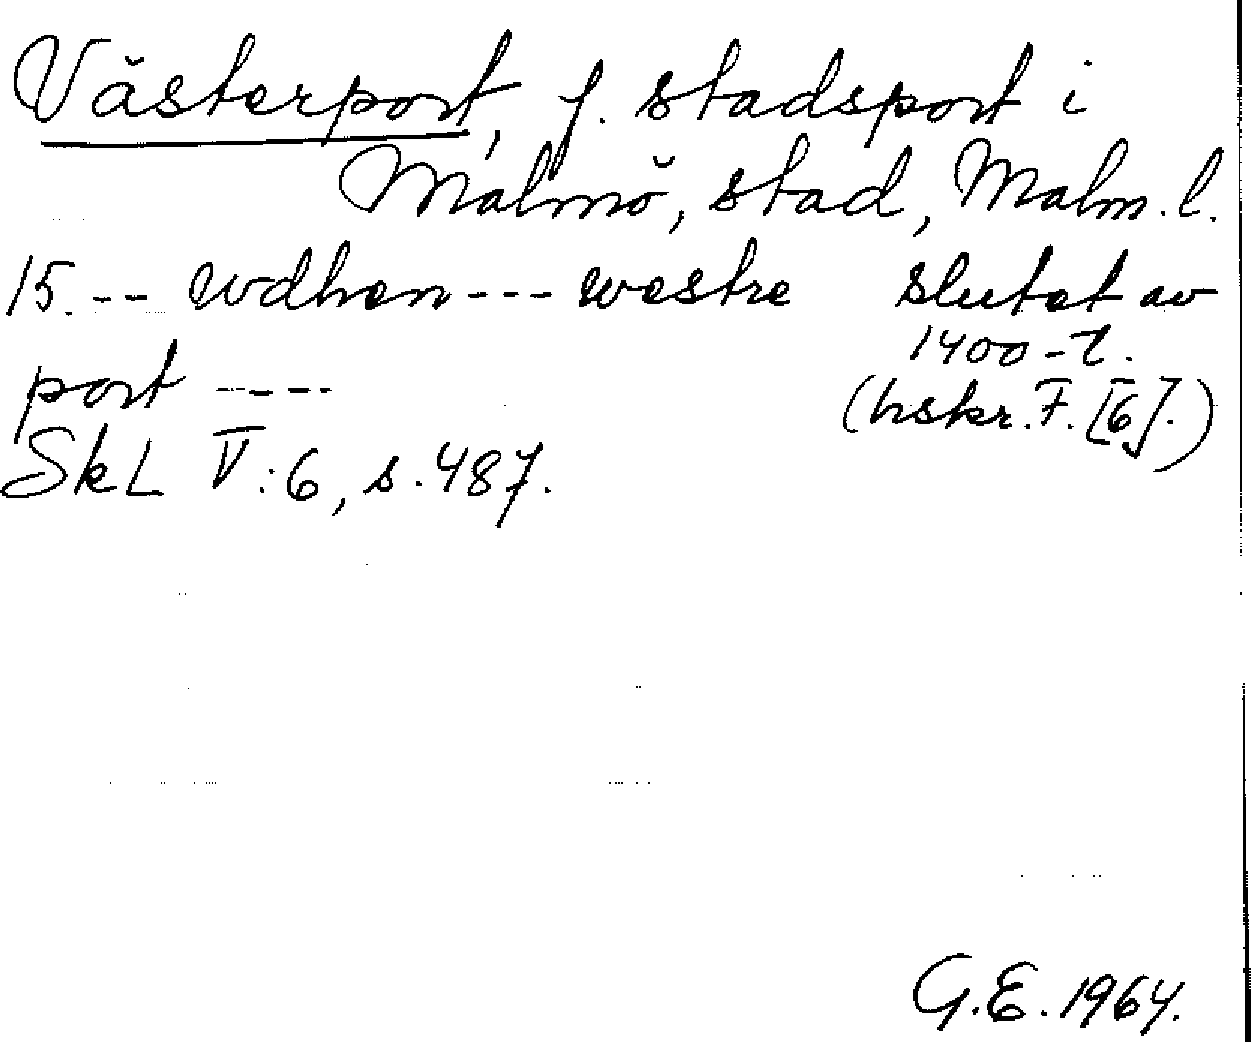 Västerport, f. stadsport i
Malmö, stad, Malm. l.
15. -- wdhen --- westre slutet av
port ---- 1400-t.
(hskr. F. [6].)
SkL V:6, s. 487.
G.E. 1964.